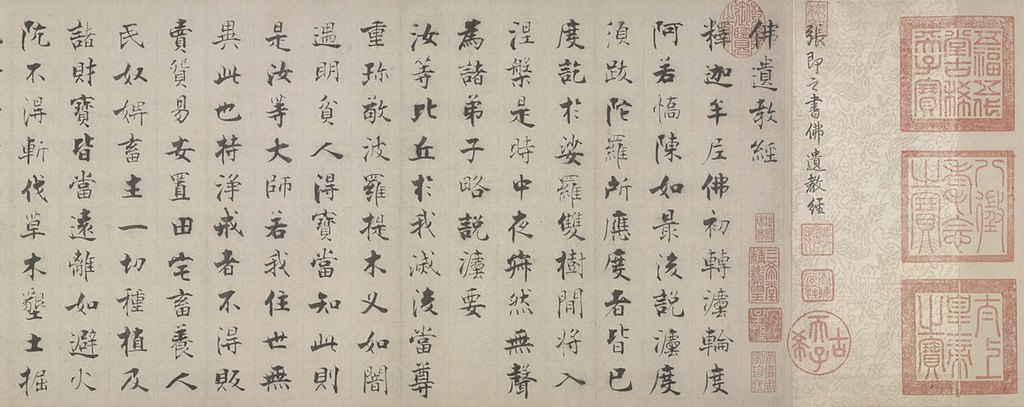 五福五代堂古稀天子寶
八徵耄念之寶
太上皇帝之寶
張即之書佛遺教經
古希天子
三希堂精鑑璽
宜子孫
佛遺教經
釋迦牟尼佛初轉灋輪度
阿若憍陳如最後說灋度
須跋陀羅所應度者皆已
度訖於娑羅雙樹間將入
涅槃是時中夜寂然無聲
為諸弟子略說灋要
汝等比丘於我滅後當尊
重珍敬波羅提木叉如闇
遇明貧人得寶當知此則
是汝等大師若我住世無
異此也持淨戒者不得販
賣貨易安置田宅畜養人
民奴婢畜生一切種植及
諸財寶皆當遠離如避火
阬不得斬伐草木墾土掘